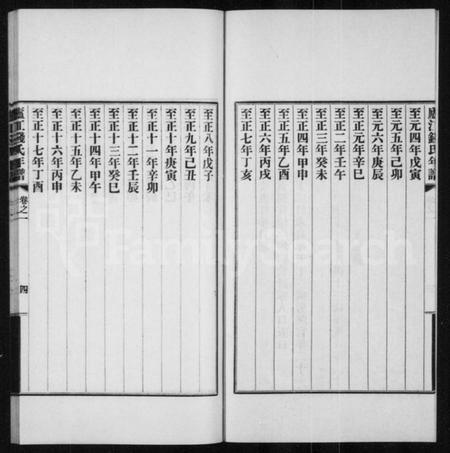 廬江錢氏年譜
至元四年戊寅
至元五年己卯
至元六年庚辰
至正元年辛巳
至正二年壬午
至正三年癸未
至正四年甲申
至正五年乙酉
至正六年丙戌
至正七年丁亥
至正八年戊子
至正九年己丑
至正十年庚寅
至正十一年辛卯
至正十二年壬辰
至正十三年癸巳
至正十四年甲午
至正十五年乙未
至正十六年丙申
至正十七年丁酉
廬江錢氏年譜
卷之一
四
FamilySearch